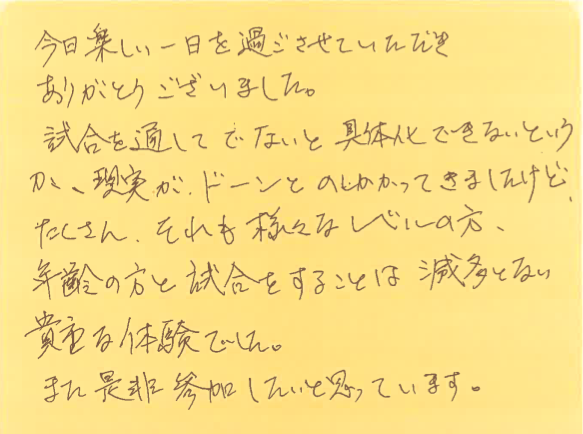 今日楽しい一日を過ごさせていただき
ありがとうございました。
試合を通してでないと具体化できないという
か、現実が、ドーンとのしかかってきましたけど、
たくさん、それも様々なレベルの方、
年齢の方と試合をすることは滅多とない
貴重な体験でした。
また是非参加したいと思っています。